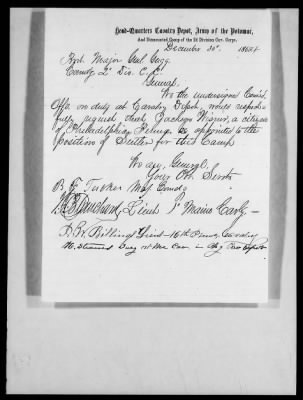 Head-Quarters Cavalry Depot, Army of the Potomac,
And Dismounted Camp of the 2d Division Cav. Corps.
December 30" 1864
Major Genl Gregg
Comdg 2" Div. C. C.
General,
We the undersigned Comd
Offs on duty at Cavalry Depot, would respect-
fully request that Jackson, a citizen
of Philadelphia Penna, be appointed to the
position of Sutler for this Camp
We are, General,
Your Obt. Servts
B. F. Tucker Maj Comdg
Lieut 1" Maine Cavly –
Lieut – 16th Penna Cavalry